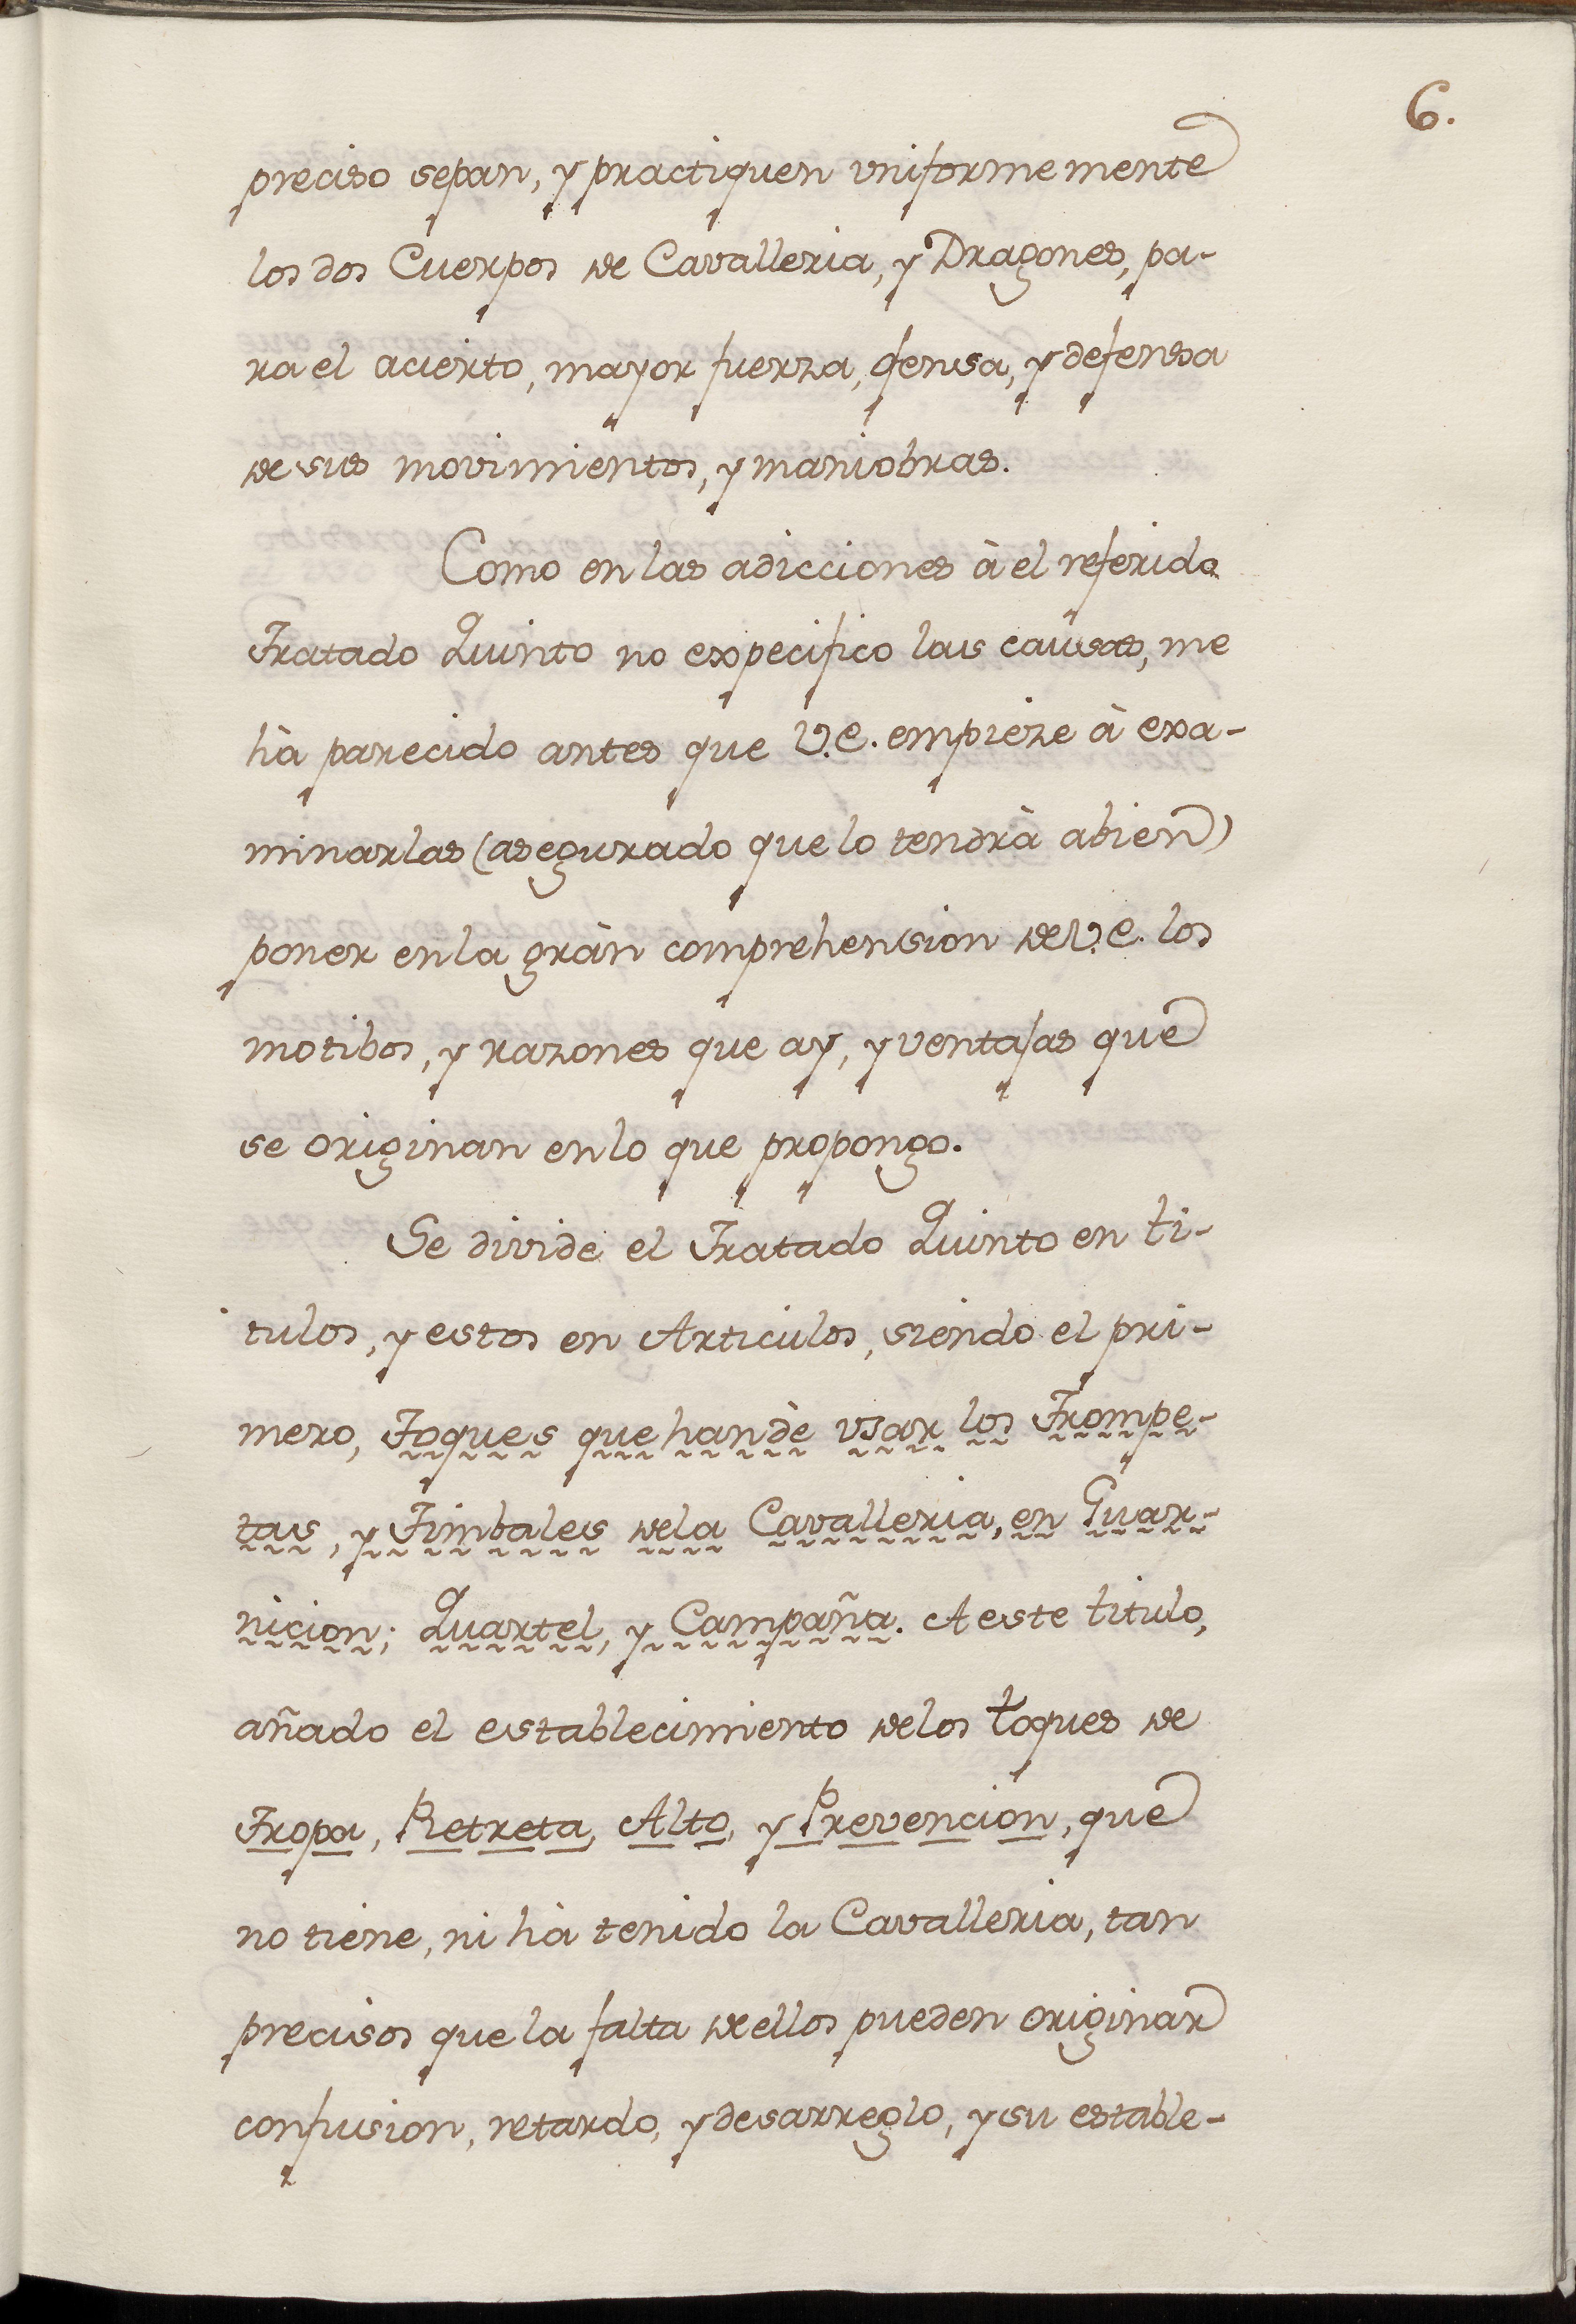 6.
preciso sepan, y practiquen vniformemente
los dos Cuerpos de Cavalleria, y Dragones, pa-
ra el acierto, mayor fuerza, ofensa, y defensa
de sus movimientos, y maniobras.
Como en las adicciones à el referido
Tratado Quinto no expecifico las causas, me
hà parecido antes que V.E. empieze à exa-
minarlas (asegurado que lo tendrà abien)
poner en la gràn comprehension de V.E. los
motibos, y razones que ay, y ventajas que
se originan en lo que propongo.
Se divide el Tratado Quinto en ti-
tulos, y estos en Articulos, siendo el pri-
mero, Toques que han dè vsar los Trompe-
tas, y Timbales de la Cavalleria, en Guar-
nicion; Quartel, y Campaña. A este titulo,
añado el establecimiento de los toques de
Tropa, Retreta, Alto, y Prevencion, que
no tiene, ni hà tenido la Cavalleria, tan
precisos que la falta de ellos pueden originar
confusion, retardo, y desarreglo, y su estable-